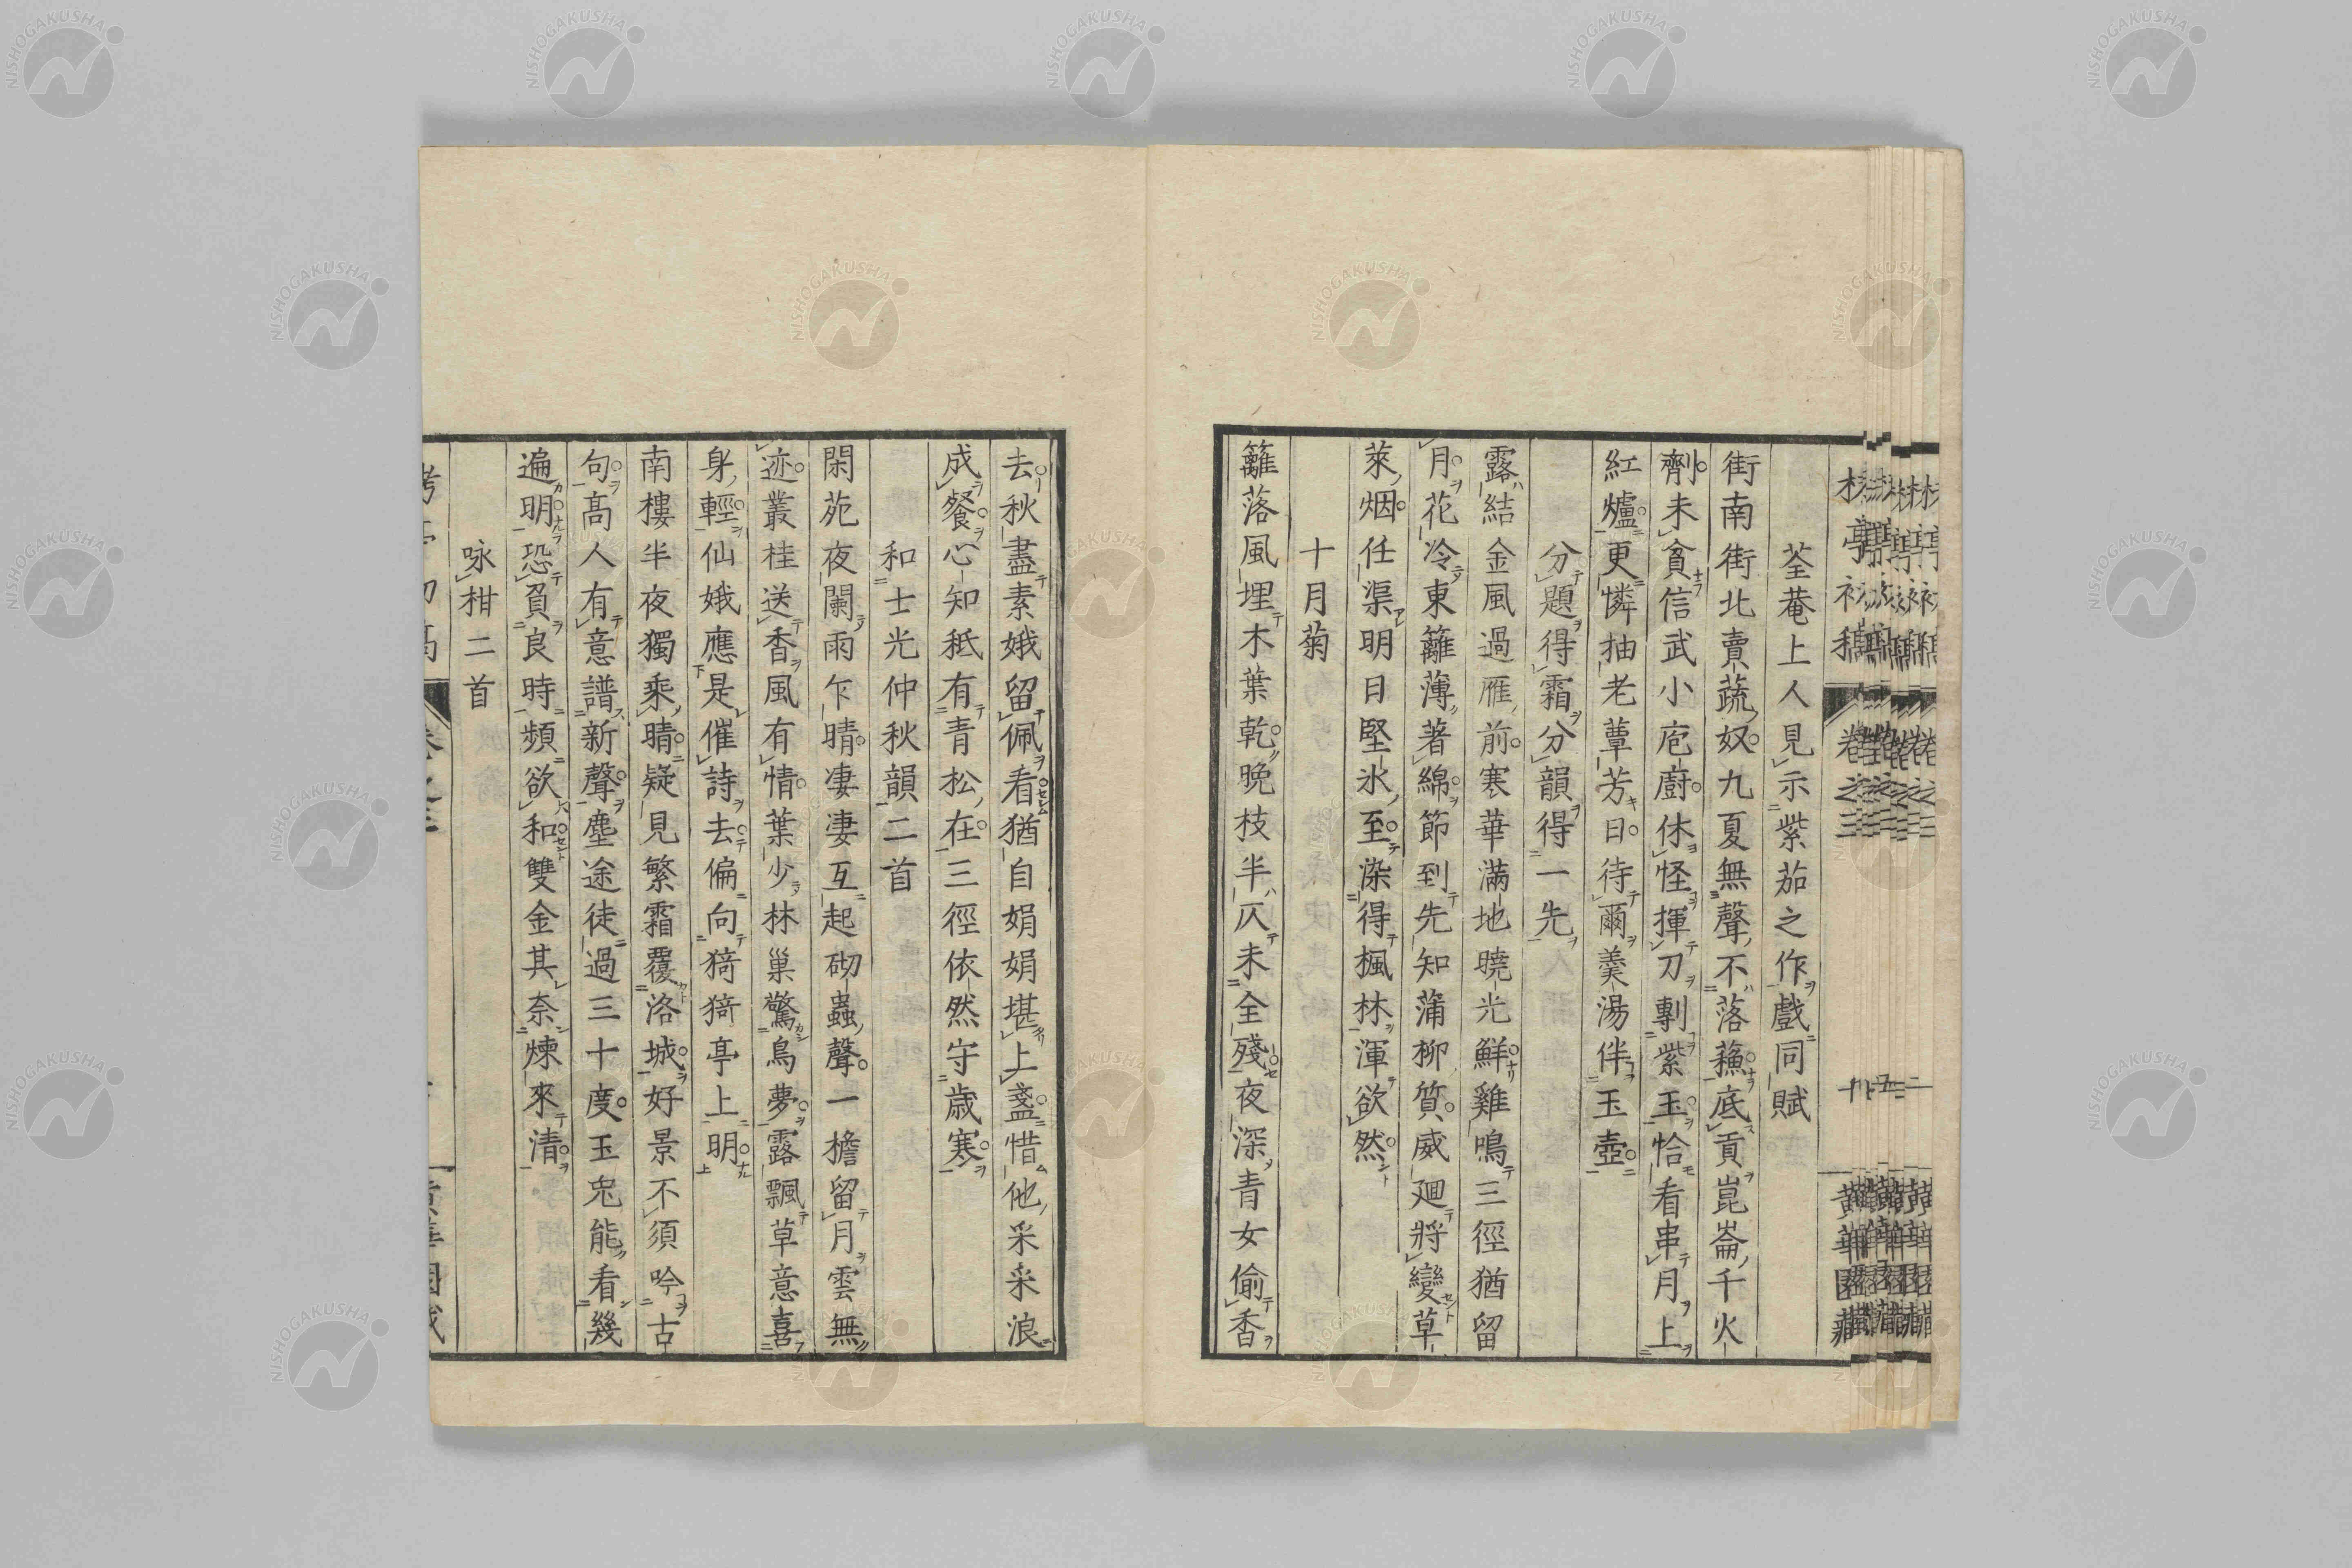 荃菴上人見示紫茄之作戲同賦
街南街北賣蔬奴九夏無聲不落蘓底貢崑崙千火
劑未貪信武小庖廚休怪揮刀剸紫玉恰看串月上
紅爐更憐抽老蕈芳日待爾羮湯伴玉壺
分題得霜分韻得一先
露結金風過雁前寒華滿地曉光鮮雞鳴三徑猶留
月花冷東籬薄著綿節到先知蒲柳質威廻將變草
萊烟任渠明日堅氷至染得楓林渾欲然
十月菊
籬落風埋木葉乾晚枝半仄未全殘夜深青女偷香
去秋盡素娥留佩看猶自娟娟堪上盞惜他采采浪
成餐心知秖有青松在三徑依然守歲寒
和士光仲秋韻二首
閑苑夜闌雨乍晴凄凄互起砌蟲聲一檐留月雲無
迹叢桂送香風有情葉少林巢驚鳥夢露飄草意喜
身輕仙娥應是催詩去偏向猗猗亭上明
南樓半夜獨乘晴疑見繁霜覆洛城好景不須吟古
句高人有意譜新聲塵途徒過三十度玉兎能看幾
遍明恐負良時頻欲和雙金其奈煉來清
咏柑二首
卷之三
黄華園藏